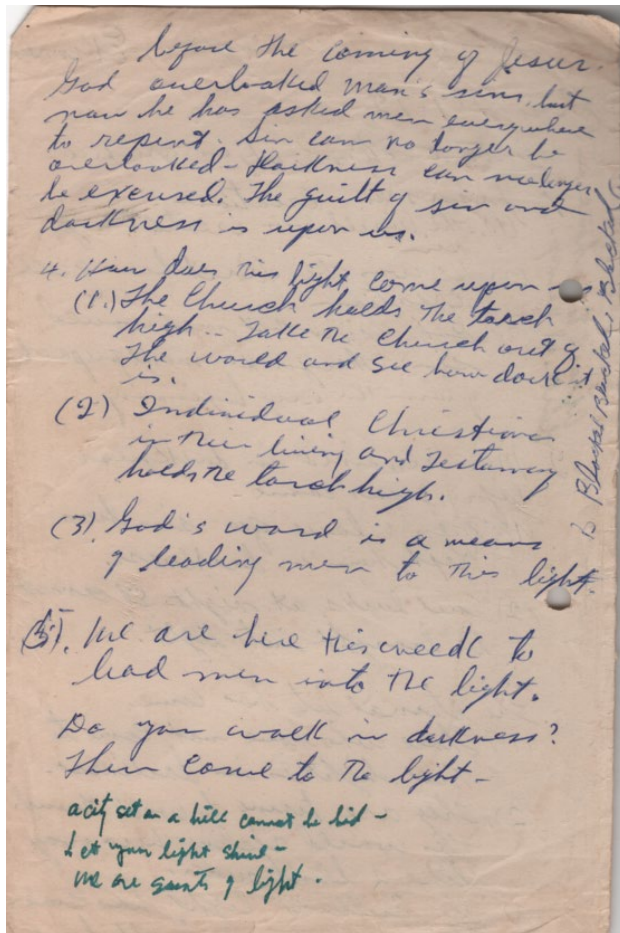 before the coming of Jesus.
God overlooked man's sins, but
now he has asked men everywhere
to repent. Sin can no longer be
overlooked - Darkness can no longer
be excused. The guilt of sin and
darkness is upon us.
4. How does this light come upon us
(1.) The Church holds the torch
high -- Take the Church out of
the world and see how dark it
is.
(2) Individual Christians
in their living and testimony
holds the torch high.
(3). God's word is a means
of leading men to this light.
(5). We are here this week to
lead men into the light.
Do you walk in darkness?
Then come to the light -
a city set on a hill cannot be hid -
Let your light shine -
we are of light.